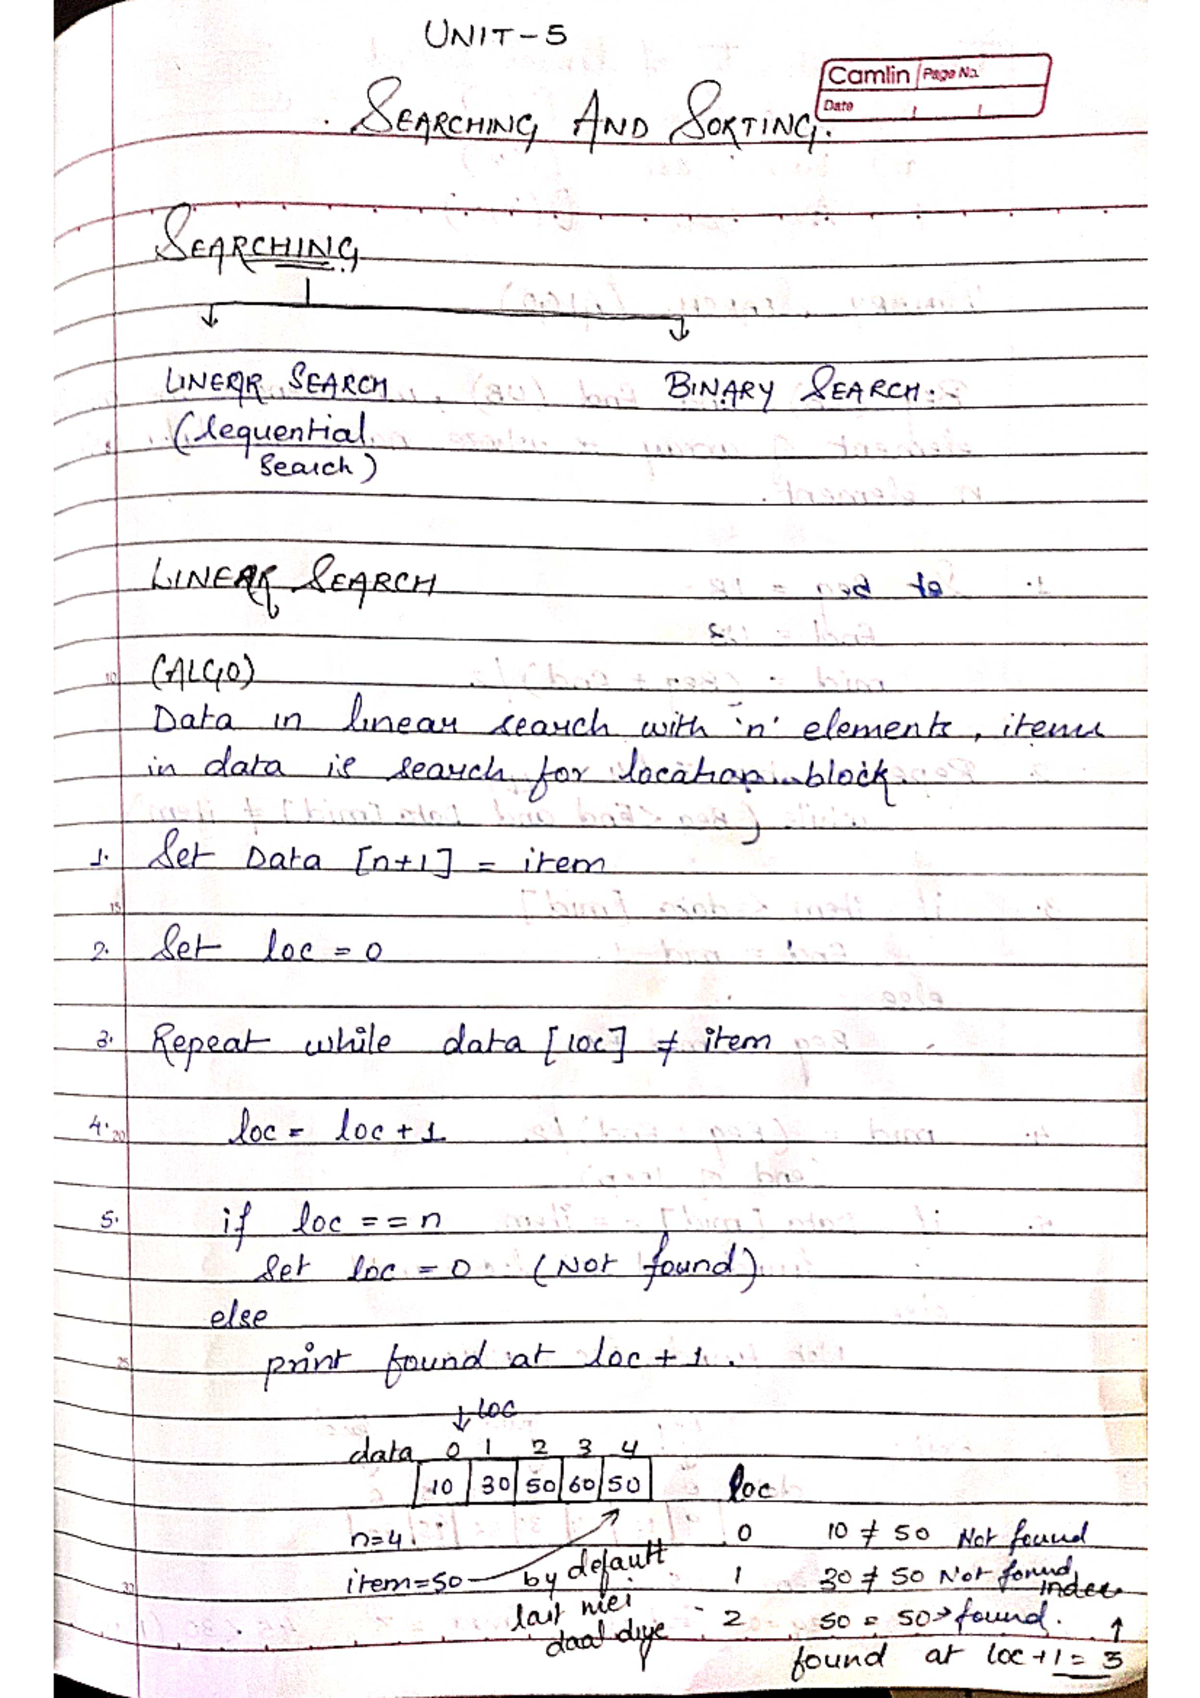 UNIT-5
Camlin Page No.
Date
SEARCHING AND SORTING.
SEARCHING
LINEAR SEARCH BINARY SEARCH.
(Sequential
Search)
LINEAR SEARCH
(ALGO)
Data in linear search with 'n' elements, items
in data is search for location block.
1. Set Data [n+1] = item
2. Set loc = 0
3. Repeat while data [loc] ≠ item
4. loc = loc + 1
5. if loc == n
Set loc = 0 (Not found)
else
print found at loc + 1.
↓ loc
data 0 1 2 3 4
10 30 50 60 50 loc
n=4. 0 10 ≠ 50 Not found
item=50 by default 1 30 ≠ 50 Not found
index
last mei 2 50 = 50 → found. ↑
daal diye found at loc+1 = 3